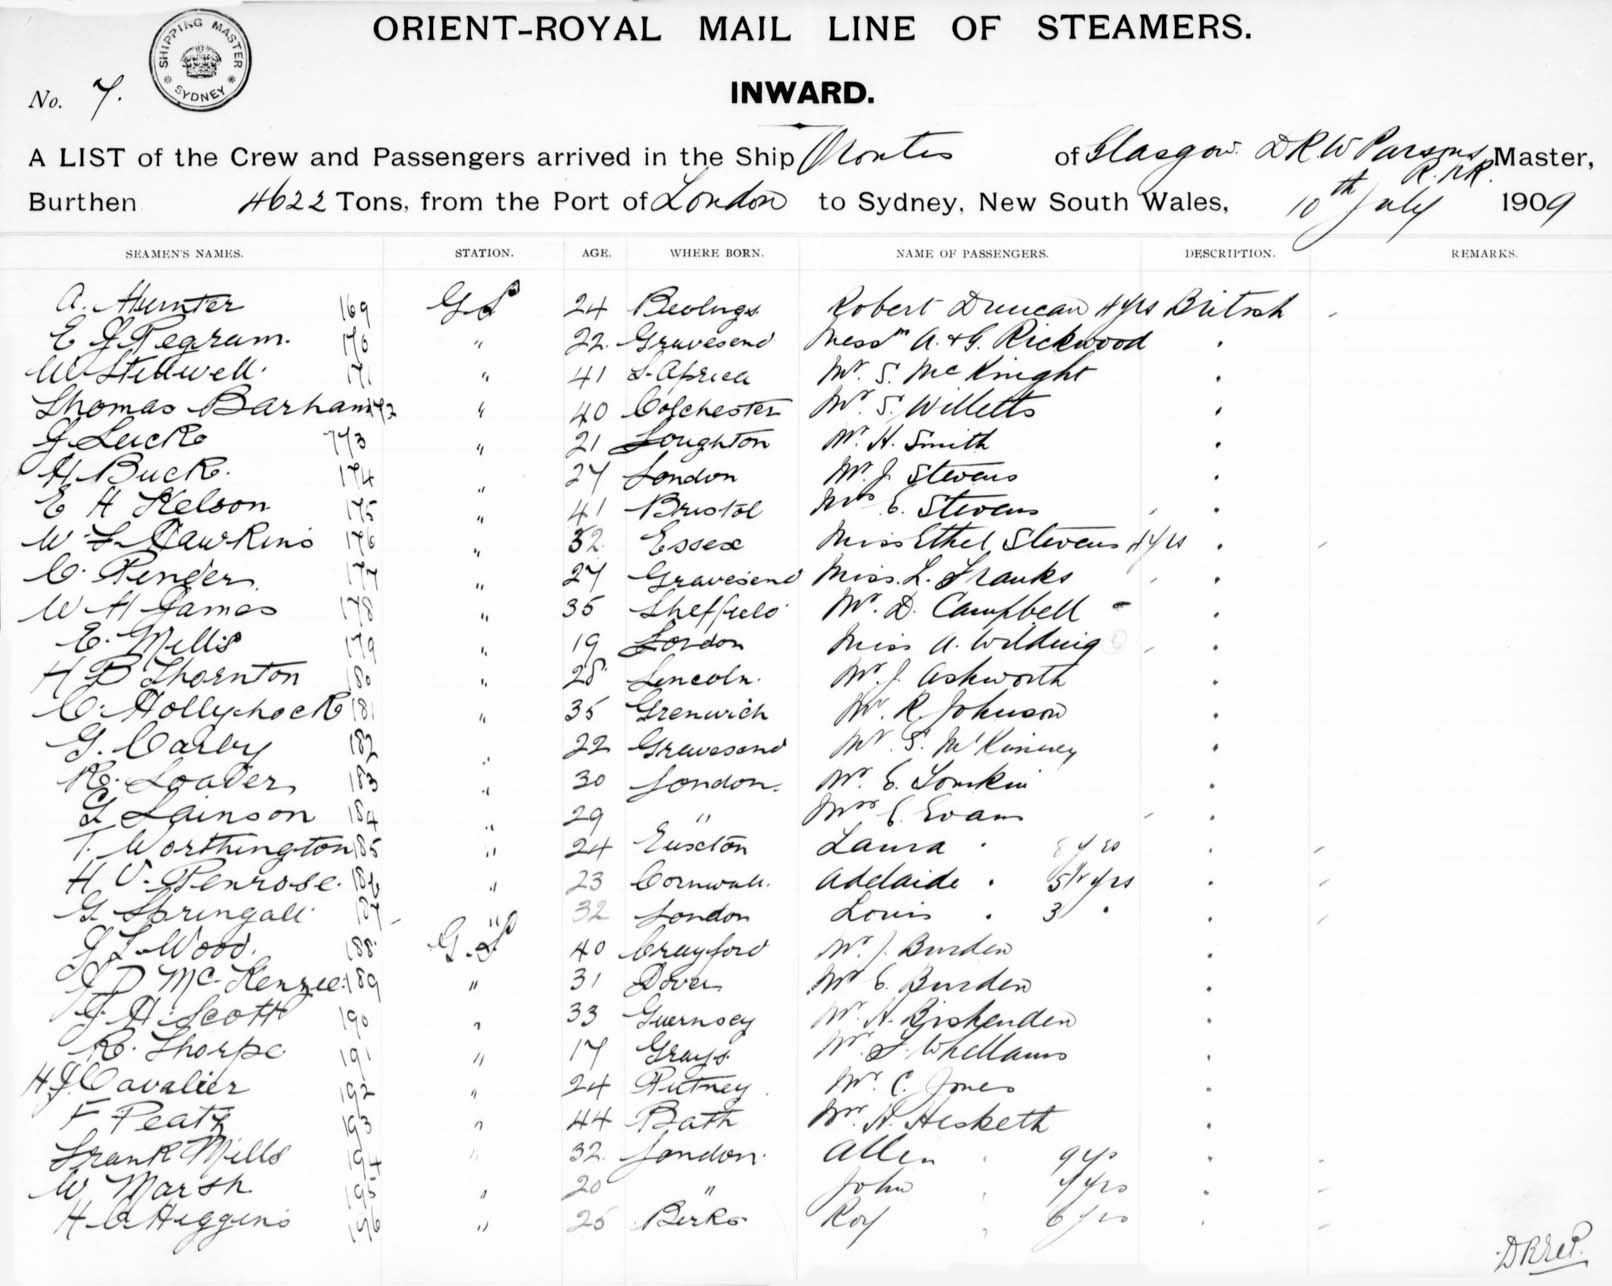 ORIENT-ROYAL MAIL LINE OF STEAMERS.
SHIPPING MASTER SYDNEY
INWARD.
No. 7.
A LIST of the Crew and Passengers arrived in the Ship Orontes of Glasgow. D R W Parsons R.N.R. Master,
Burthen 4622 Tons, from the Port of London to Sydney, New South Wales, 10th July 1909
SEAMEN'S NAMES. STATION. AGE. WHERE BORN. NAME OF PASSENGERS. DESCRIPTION. REMARKS.
A. Hunter 169 G.S 24 Robert Duncan 4yrs British
E J Pegram. 170 " 22 Gravesend Messrs A. & G. Rickwood "
W Stillwell. 171 " 41 S. Africa Mr. S. McKnight "
Thomas Barham 172 " 40 Colchester Mr. S. Willetts "
J. Luck 173 " 21 Loughton Mr. H. Smith "
H Buck. 174 " 27 London Mr. J. Stevens "
E H Kelson 175 " 41 Bristol Mrs E. Stevens "
W. S. Hawkins 176 " 32 Essex Miss Ethel Stevens 4yrs "
C. Pender 177 " 27 Gravesend Miss. L. Franks "
W H James 178 " 35 Sheffield Mr. D. Campbell "
E. Mills 179 " 19 London Miss A. Wilding "
H B Thornton 180 " 28 Lincoln. Mr. J. Ashworth "
C. Hollyhock 181 " 35 Grenwich Mr. R. Johnson "
G. Carby 182 " 22 Gravesend Mr. S. McKinney "
R. Loader 183 " 30 London. Mr. E. Tomkin "
G Lainson 184 " 29 " Mrs E. Evans "
T. Worthington 185 " 24 Euxton Laura " 8 yrs "
H V. Penrose. 186 " 23 Cornwall. Adelaide " 5½ yrs "
G Springall 187 " 32 London Louis " 3 " "
J L Wood. 188 G.S 40 Crayford Mr. J. Burden "
J D McKenzie 189 " 31 Dover Mr E. Burden "
J. H. Scott 190 " 33 Guernsey Mr. H. "
R. Thorpe 191 " 17 Grays Mr. "
H J Cavalier 192 " 24 Putney Mr. C. Jones "
F Peatz 193 " 44 Bath Mrs. H. Hesketh "
Frank Mills 194 " 32 London. Allen " 9 yrs "
W Marsh 195 " 20 " John " yrs "
H A Higgins 196 " 25 Berks Roy " 6 yrs "